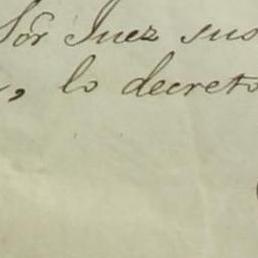 Sor Juez sus
, lo decreto